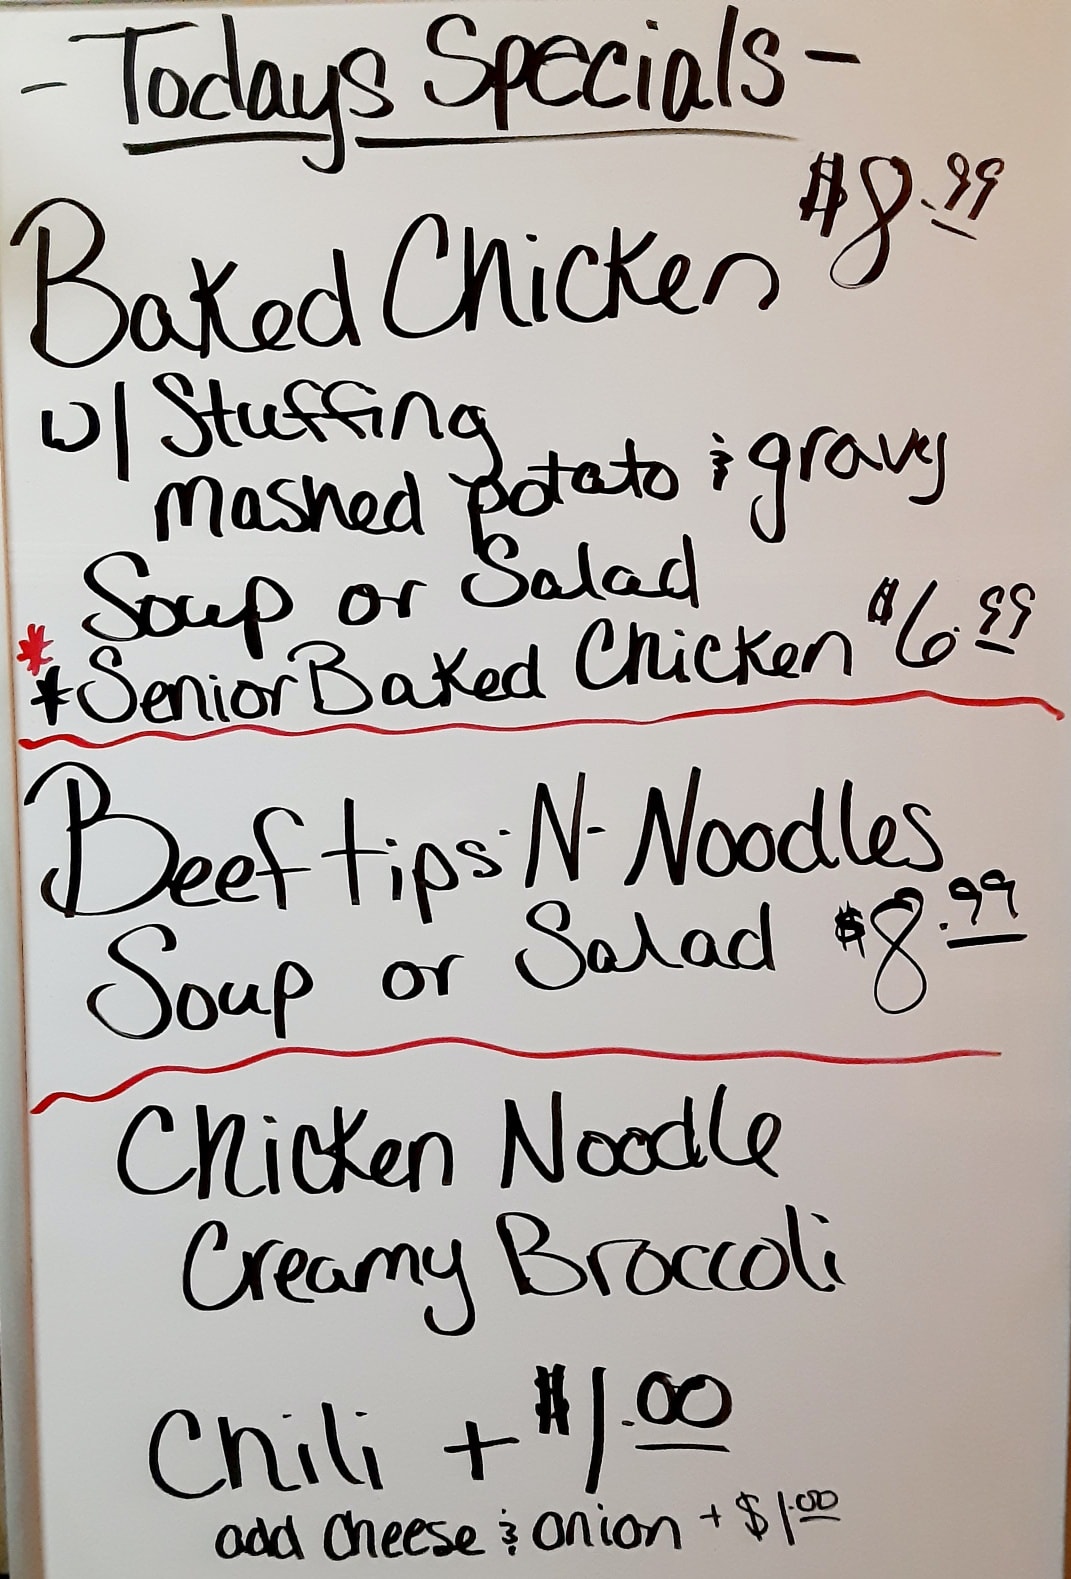 - Todays Specials -
Baked Chicken $8.99
w/ Stuffing
mashed potato & gravy
Soup or Salad
**Senior Baked Chicken $6.99
Beef tips-N-Noodles
Soup or Salad $8.99
Chicken Noodle
Creamy Broccoli
Chili + $1.00
add cheese & onion + $1.00